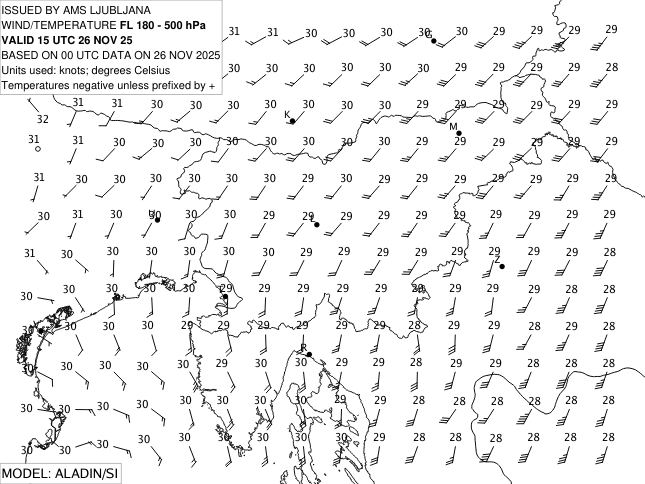 ISSUED BY AMS LJUBLJANA
WIND/TEMPERATURE FL 180 - 500 hPa
VALID 15 UTC 26 NOV 25
BASED ON 00 UTC DATA ON 26 NOV 2025
Units used: knots; degrees Celsius
Temperatures negative unless prefixed by +
31 31 30 30 30 30 G 29 29 29 29 29
30 30 30 30 30 29 29 29 29 29 28
31 31 30 30 30 30 30 30 30 29 29 29 29 29 29
32 K M
31 31 30 30 30 30 30 30 30 30 29 29 29 29 29 29
31 30 30 30 30 30 30 30 29 29 29 29 29 29 29 29
30 31 30 30 30 30 29 29 29 29 29 29 29 29 29 29
L
31 30 30 30 30 30 30 30 30 29 29 29 29 29 29 28
Z
30 30 30 30 30 29 29 29 29 29 29 29 29 29 28 28
30 30 30 30 29 29 29 30 29 29 28 29 29 28 28 28
R
30 30 30 30 30 30 30 30 29 29 28 29 29 28 28 28
30 30 30 30 30 30 30 30 29 29 28 28 28 28 28 28
30 30 30 30 30 30 30 30 30 29 28 28 28 28 28 28
MODEL: ALADIN/SI